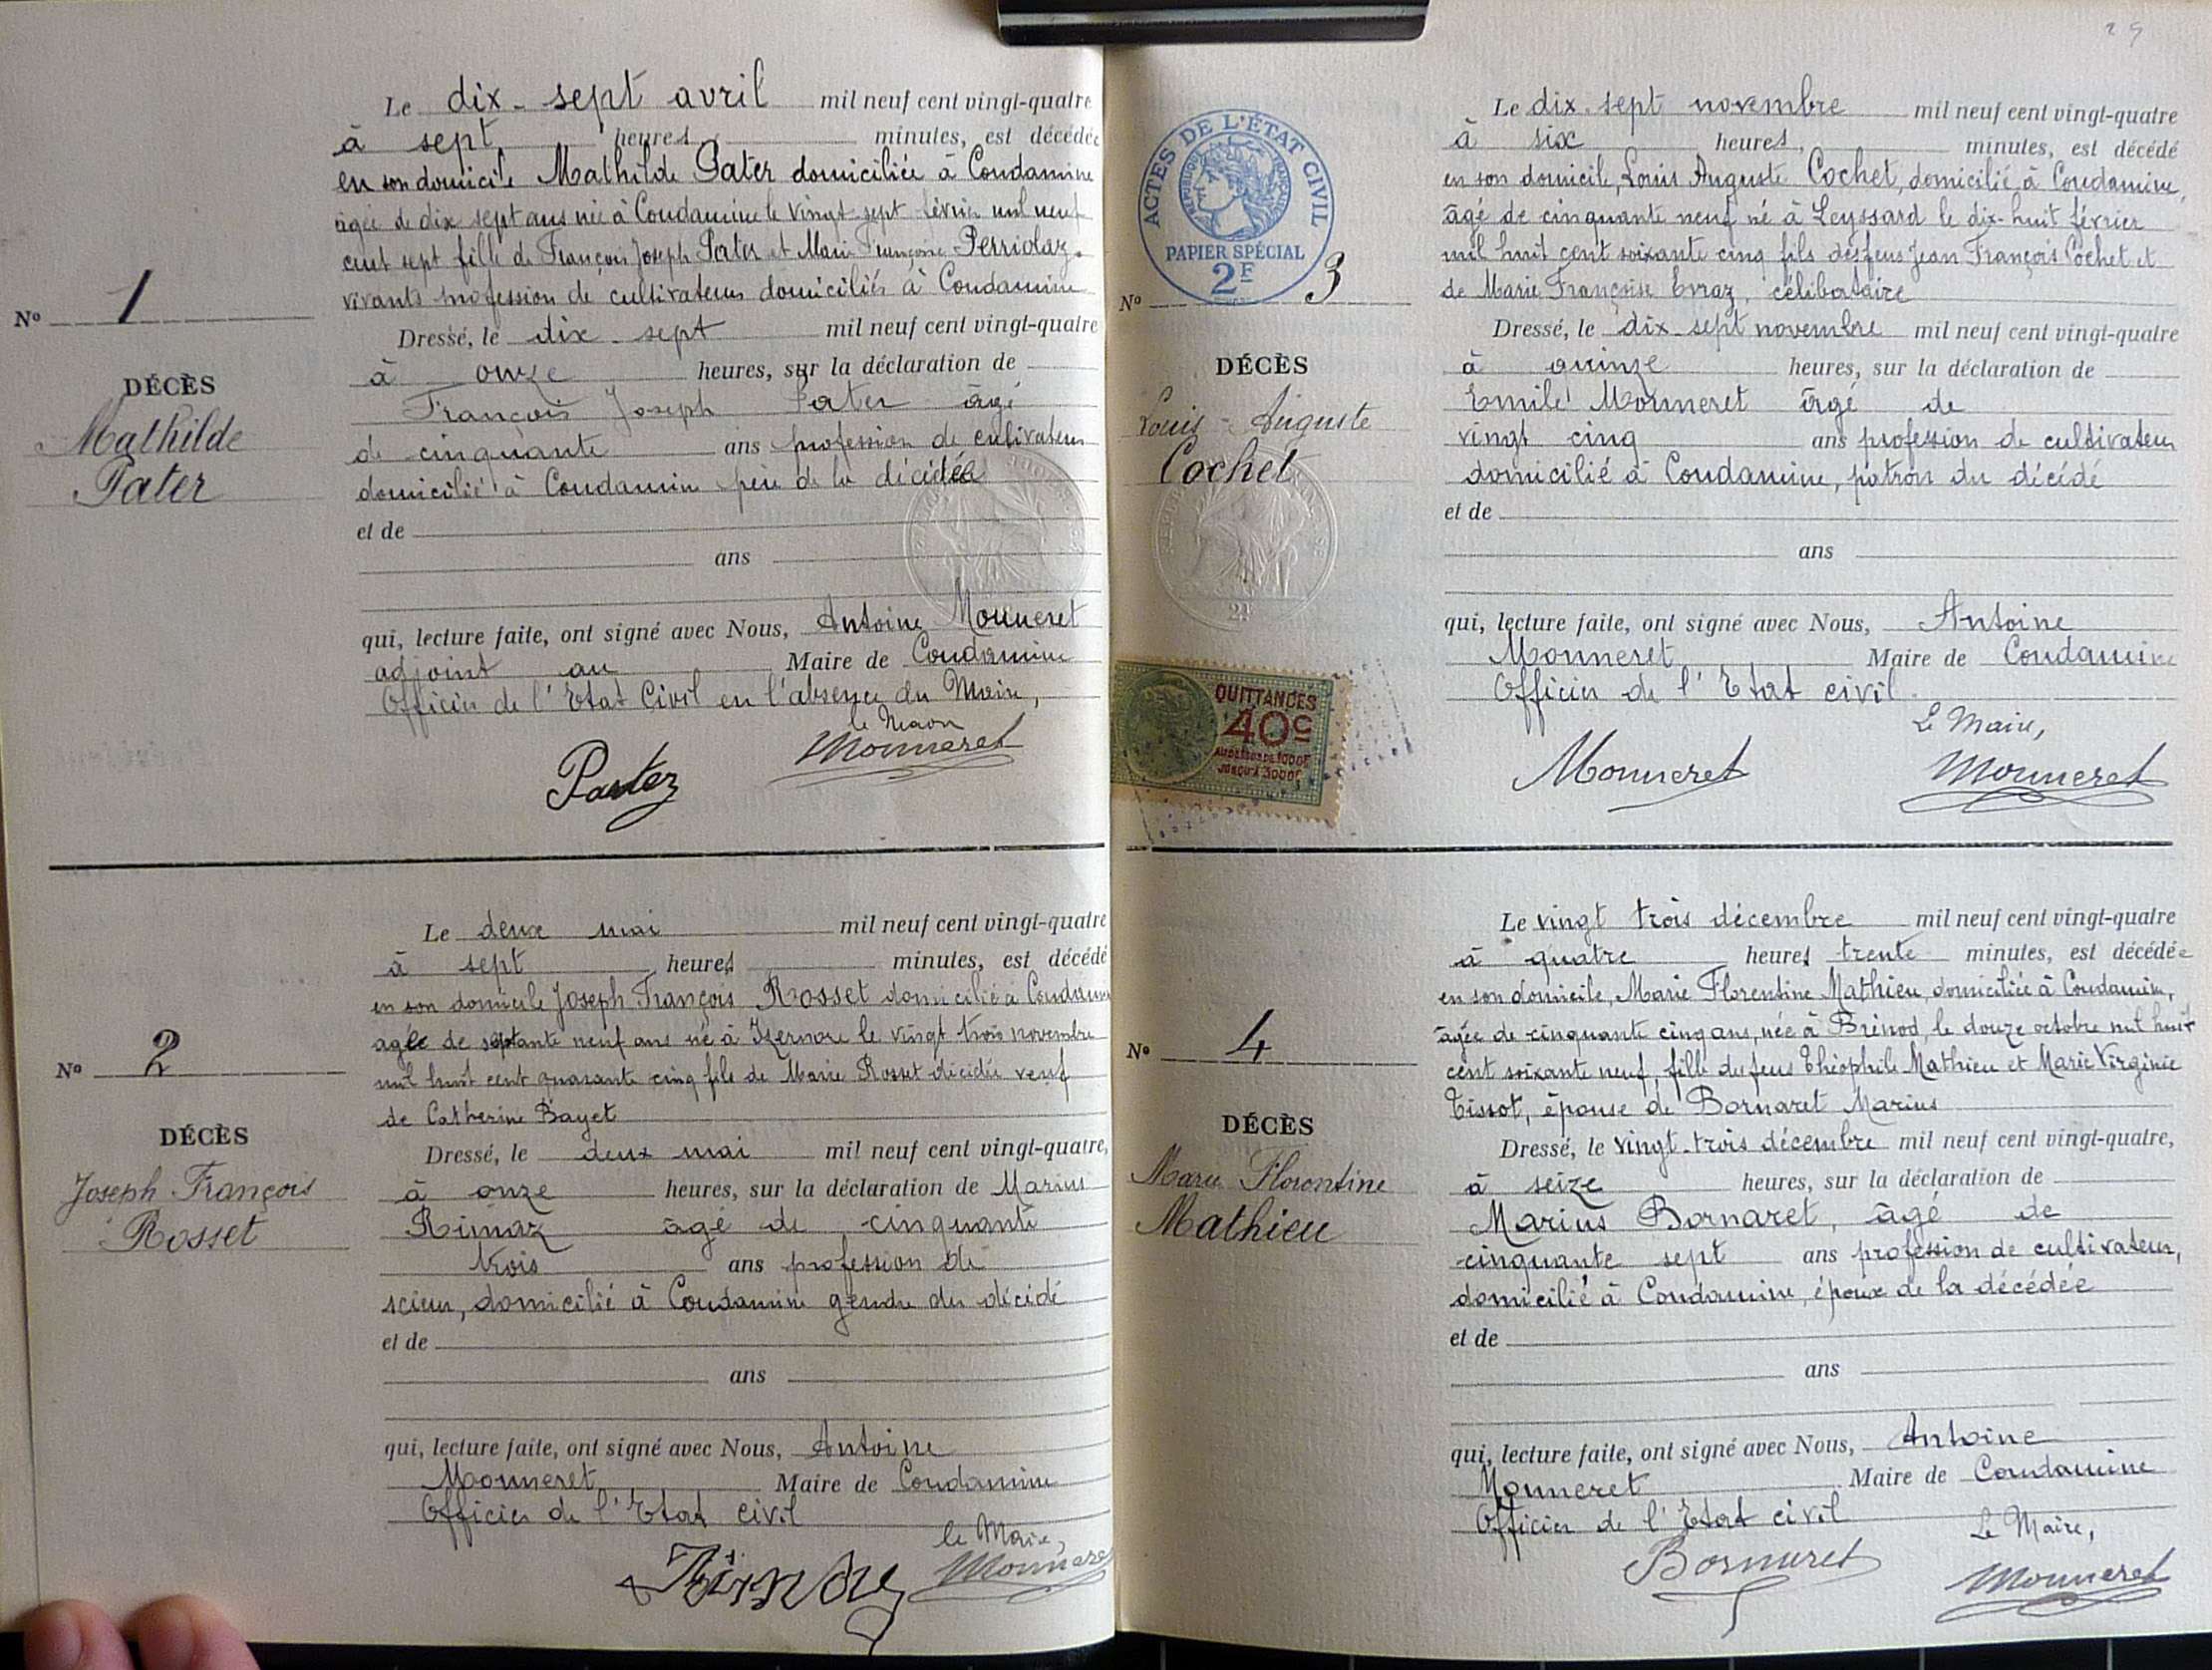 Le dix-sept avril mil neuf cent vingt-quatre
à sept heures, minutes, est décédée
en son domicile Mathilde Pater domiciliée à Condamine
âgée de dix sept ans née à Condamine le vingt-sept février mil neuf
cent sept fille de François Joseph Pater et Marie Françoise Perriolaz.
vivants profession de cultivateurs domiciliés à Condamine
No 1
Dressé, le dix-sept mil neuf cent vingt-quatre
DÉCÈS
à onze heures, sur la déclaration de
Mathilde
François Joseph Pater âgé
de cinquante ans profession de cultivateur
Pater
domicilié à Condamine père de la décédée
et de
ans
qui, lecture faite, ont signé avec Nous, Antoine Monneret
adjoint au Maire de Condamine
Officier de l'Etat Civil en l'absence du Maire,
Monneret
No 2
Le deux mai mil neuf cent vingt-quatre
à sept heures minutes, est décédé
en son domicile Joseph François Rosset domicilié à Condamine
agé de septante neuf ans né à Izernore le vingt trois novembre
mil huit cent quarante cinq fils de Marie Rosset décédée veuf
de Catherine Bayet
DÉCÈS
Joseph François
Rosset
Dressé, le deux mai mil neuf cent vingt-quatre,
à onze heures, sur la déclaration de Marius
Rimaz âgé de cinquante
trois ans profession de
scieur, domicilié à Condamine gendre du décédé
et de
ans
qui, lecture faite, ont signé avec Nous, Antoine
Monneret Maire de Condamine
Officier de l'Etat civil
le Maire,
Monneret
25
ACTES DE L'ÉTAT CIVIL
PAPIER SPÉCIAL
2F
No 3
DÉCÈS
Louis-Auguste
Cochet
24
QUITTANCES
40c
AU DESSUS DE 1000F
JUSQU'À 3000F
Le dix-sept novembre mil neuf cent vingt-quatre
à six heures, minutes, est décédé
en son domicile, Louis Auguste Cochet, domicilié à Condamine,
âgé de cinquante neuf né à Leyssard le dix-huit février
mil huit cent soixante cinq fils des feus Jean François Cochet et
de Marie Françoise Evraz, célibataire
Dressé, le dix-sept novembre mil neuf cent vingt-quatre
à quinze heures, sur la déclaration de
Emile Monneret âgé de
vingt cinq ans profession de cultivateur
domicilié à Condamine, patron du décédé
et de
ans
qui, lecture faite, ont signé avec Nous, Antoine
Monneret Maire de Condamine
Officier de l'Etat civil.
Le Maire,
Monneret Monneret
No 4
DÉCÈS
Marie Florentine
Mathieu
Le vingt trois décembre mil neuf cent vingt-quatre
à quatre heures trente minutes, est décédée
en son domicile, Marie Florentine Mathieu, domiciliée à Condamine,
âgée de cinquante cinq ans, née à Brénod, le douze octobre mil huit
cent soixante neuf, fille du feus Théophile Mathieu et Marie Virginie
Tissot, épouse de Bornaret Marius
Dressé, le vingt-trois décembre mil neuf cent vingt-quatre,
à seize heures, sur la déclaration de
Marius Bornaret, âgé de
cinquante sept ans profession de cultivateur,
domicilié à Condamine, époux de la décédée
et de
ans
qui, lecture faite, ont signé avec Nous, Antoine
Monneret Maire de Condamine
Officier de l'Etat civil
Le Maire,
Bornaret Monneret